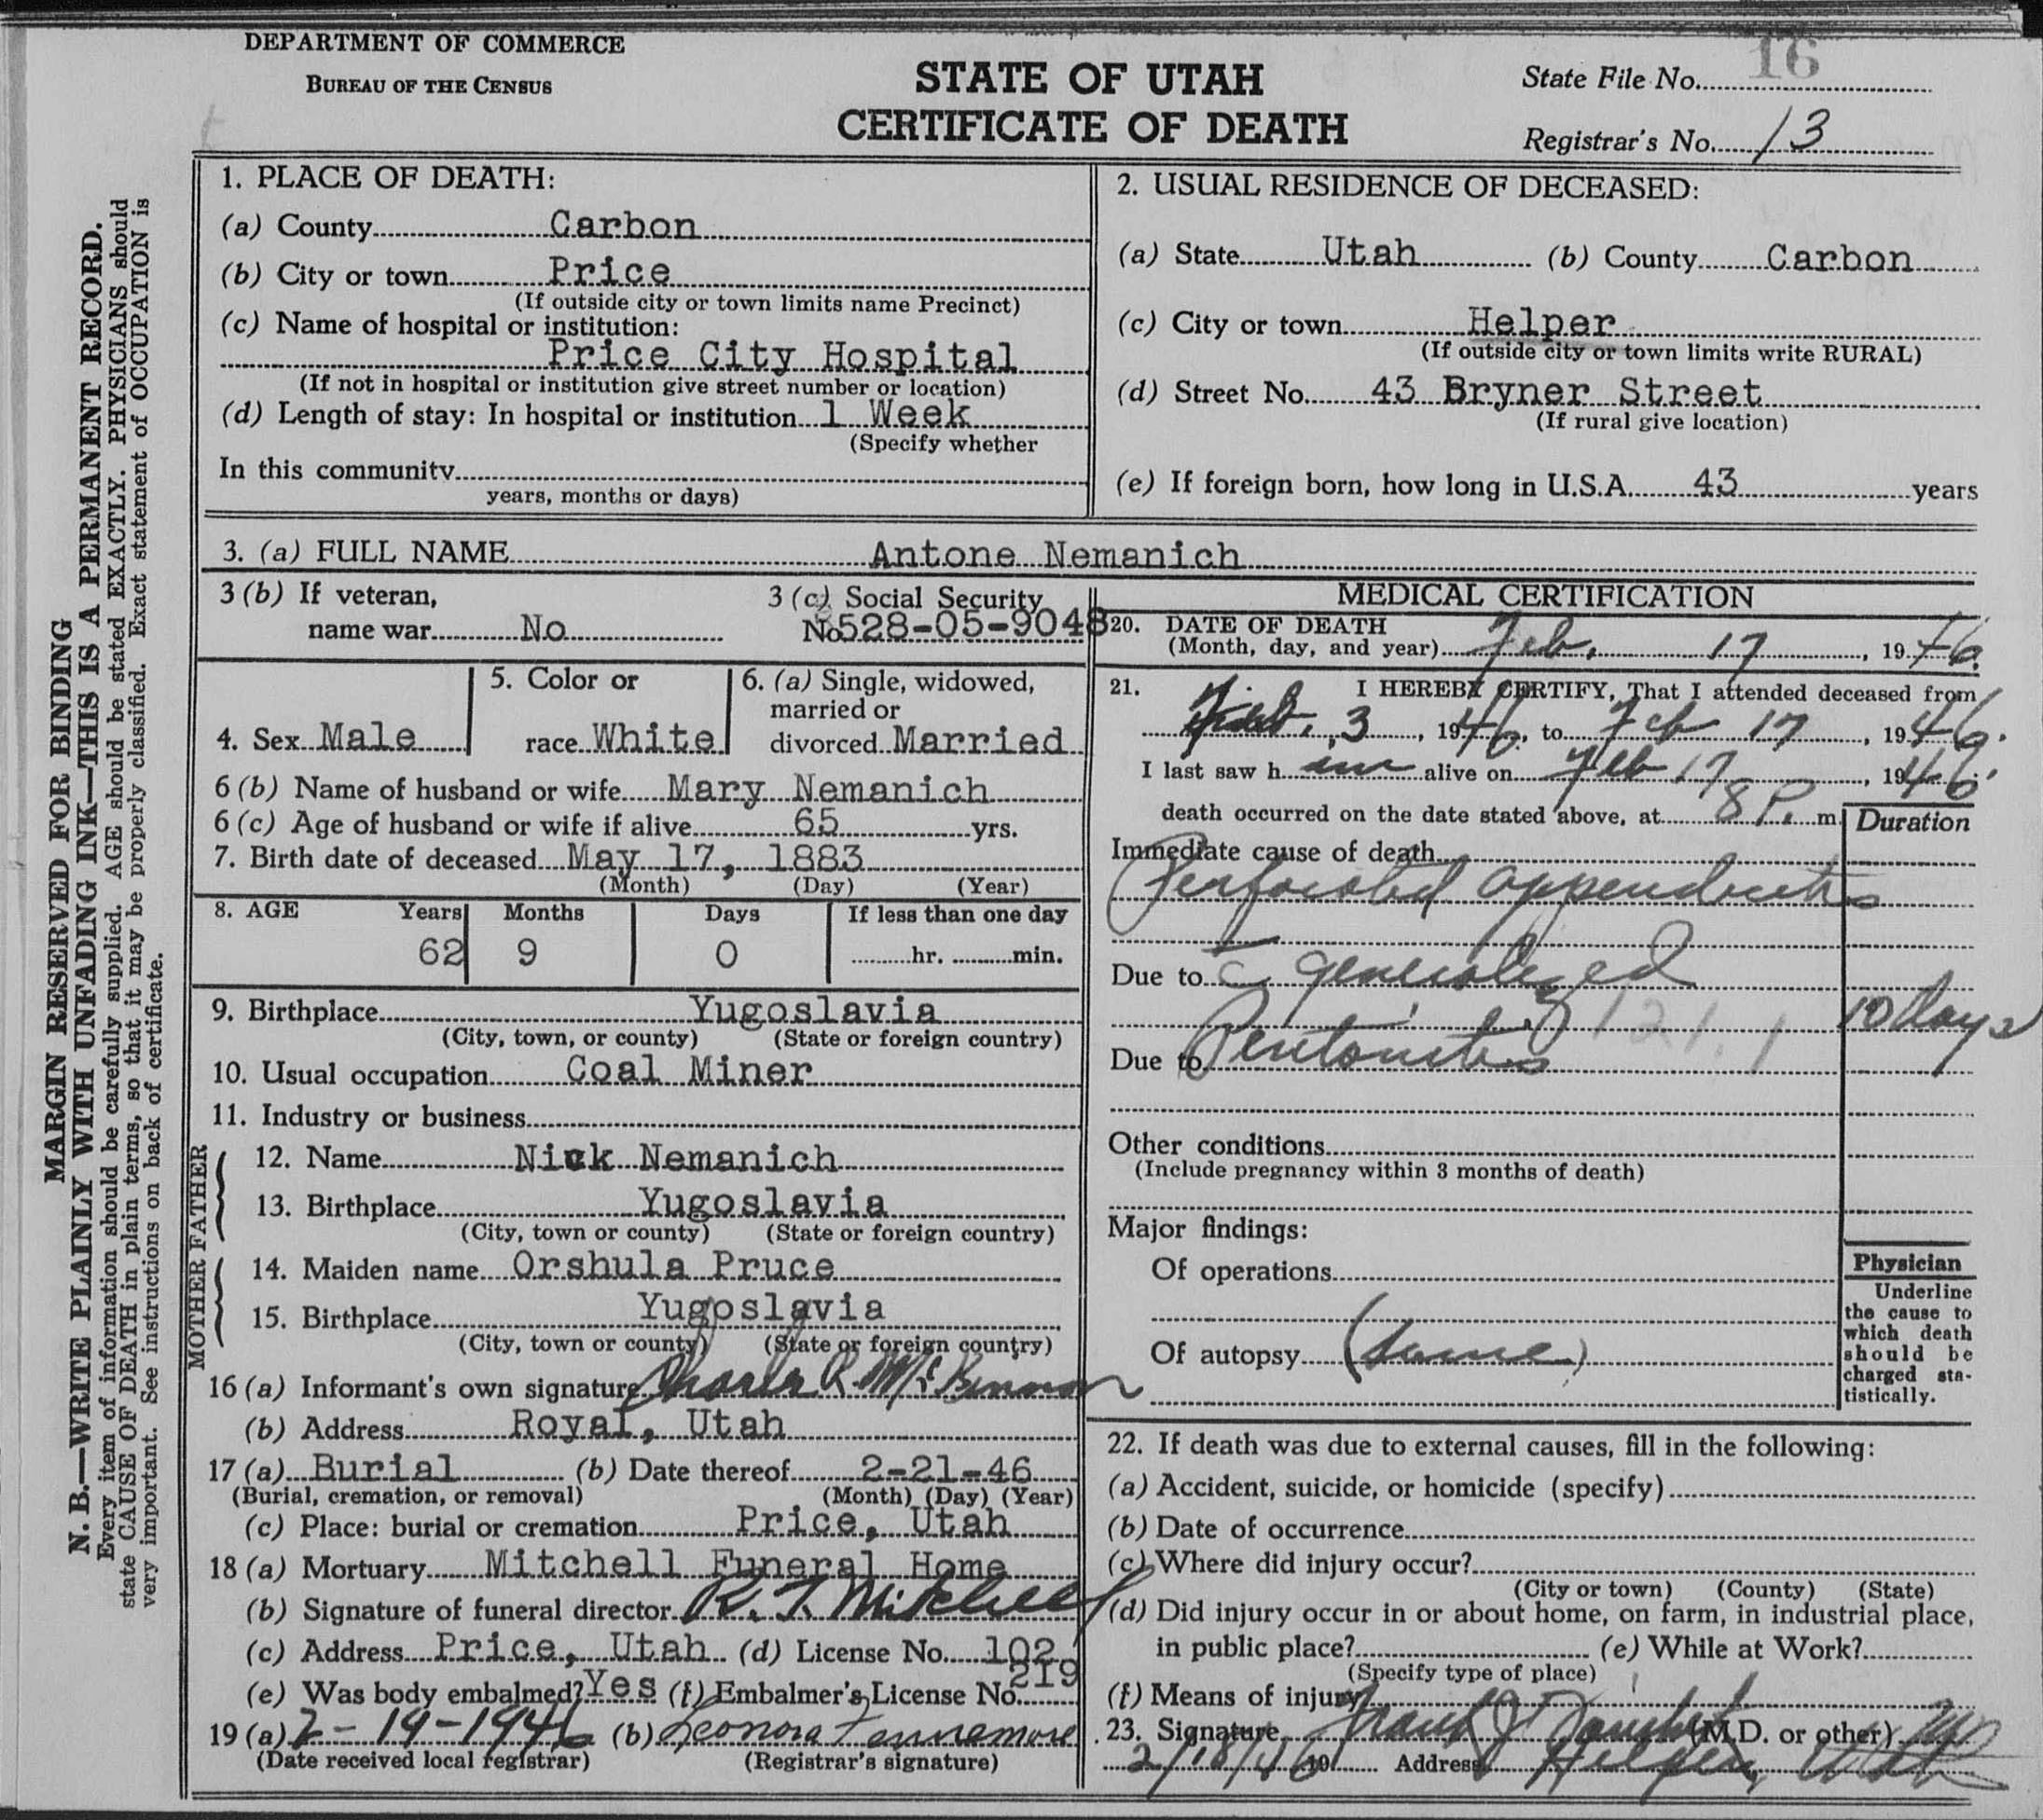 DEPARTMENT OF COMMERCE
BUREAU OF THE CENSUS
STATE OF UTAH
CERTIFICATE OF DEATH
State File No. 16
Registrar's No. 13
MARGIN RESERVED FOR BINDING
N. B.—WRITE PLAINLY WITH UNFADING INK—THIS IS A PERMANENT RECORD.
Every item of information should be carefully supplied. AGE should be stated EXACTLY. PHYSICIANS should
state CAUSE OF DEATH in plain terms, so that it may be properly classified. Exact statement of OCCUPATION is
very important. See instructions on back of certificate.
1. PLACE OF DEATH:
(a) County Carbon
(b) City or town Price
(If outside city or town limits name Precinct)
(c) Name of hospital or institution:
Price City Hospital
(If not in hospital or institution give street number or location)
(d) Length of stay: In hospital or institution 1 Week
(Specify whether
In this community
years, months or days)
2. USUAL RESIDENCE OF DECEASED:
(a) State Utah (b) County Carbon
(c) City or town Helper
(If outside city or town limits write RURAL)
(d) Street No. 43 Bryner Street
(If rural give location)
(e) If foreign born, how long in U.S.A. 43 years
3. (a) FULL NAME Antone Nemanich
3 (b) If veteran,
name war No
3 (c) Social Security
No. 528-05-9048
4. Sex Male
5. Color or
race White
6. (a) Single, widowed,
married or
divorced Married
6 (b) Name of husband or wife Mary Nemanich
6 (c) Age of husband or wife if alive 65 yrs.
7. Birth date of deceased May 17, 1883
(Month) (Day) (Year)
8. AGE Years Months Days If less than one day
62 9 0 hr. min.
9. Birthplace Yugoslavia
(City, town, or county) (State or foreign country)
10. Usual occupation Coal Miner
11. Industry or business
FATHER
12. Name Nick Nemanich
13. Birthplace Yugoslavia
(City, town or county) (State or foreign country)
MOTHER
14. Maiden name Orshula Pruce
15. Birthplace Yugoslavia
(City, town or county) (State or foreign country)
16 (a) Informant's own signature Charles R. Mc
(b) Address Royal, Utah
17 (a) Burial (b) Date thereof 2-21-46
(Burial, cremation, or removal) (Month) (Day) (Year)
(c) Place: burial or cremation Price, Utah
18 (a) Mortuary Mitchell Funeral Home
(b) Signature of funeral director R. T. Mitchell
(c) Address Price, Utah (d) License No. 102
(e) Was body embalmed? Yes (f) Embalmer's License No. 219
19 (a) 2-19-1946 (b) Leonora Fennemore
(Date received local registrar) (Registrar's signature)
MEDICAL CERTIFICATION
20. DATE OF DEATH
(Month, day, and year) Feb. 17, 1946.
21. I HEREBY CERTIFY, That I attended deceased from
Feb. 3, 1946, to Feb 17, 1946.
I last saw him alive on Feb 17, 1946.
death occurred on the date stated above, at 8 P. m.
Duration
Immediate cause of death
Perforated appendicitis
Due to c̄ generalized
121.1 10 days
Due to Peritonitis
Other conditions
(Include pregnancy within 3 months of death)
Major findings:
Of operations
Of autopsy (same)
Physician
Underline
the cause to
which death
should be
charged sta-
tistically.
22. If death was due to external causes, fill in the following:
(a) Accident, suicide, or homicide (specify)
(b) Date of occurrence
(c) Where did injury occur?
(City or town) (County) (State)
(d) Did injury occur in or about home, on farm, in industrial place,
in public place? (e) While at Work?
(Specify type of place)
(f) Means of injury
23. Signature Frank J. (M.D. or other) MD
2/18/46 19 Address Helper, Utah